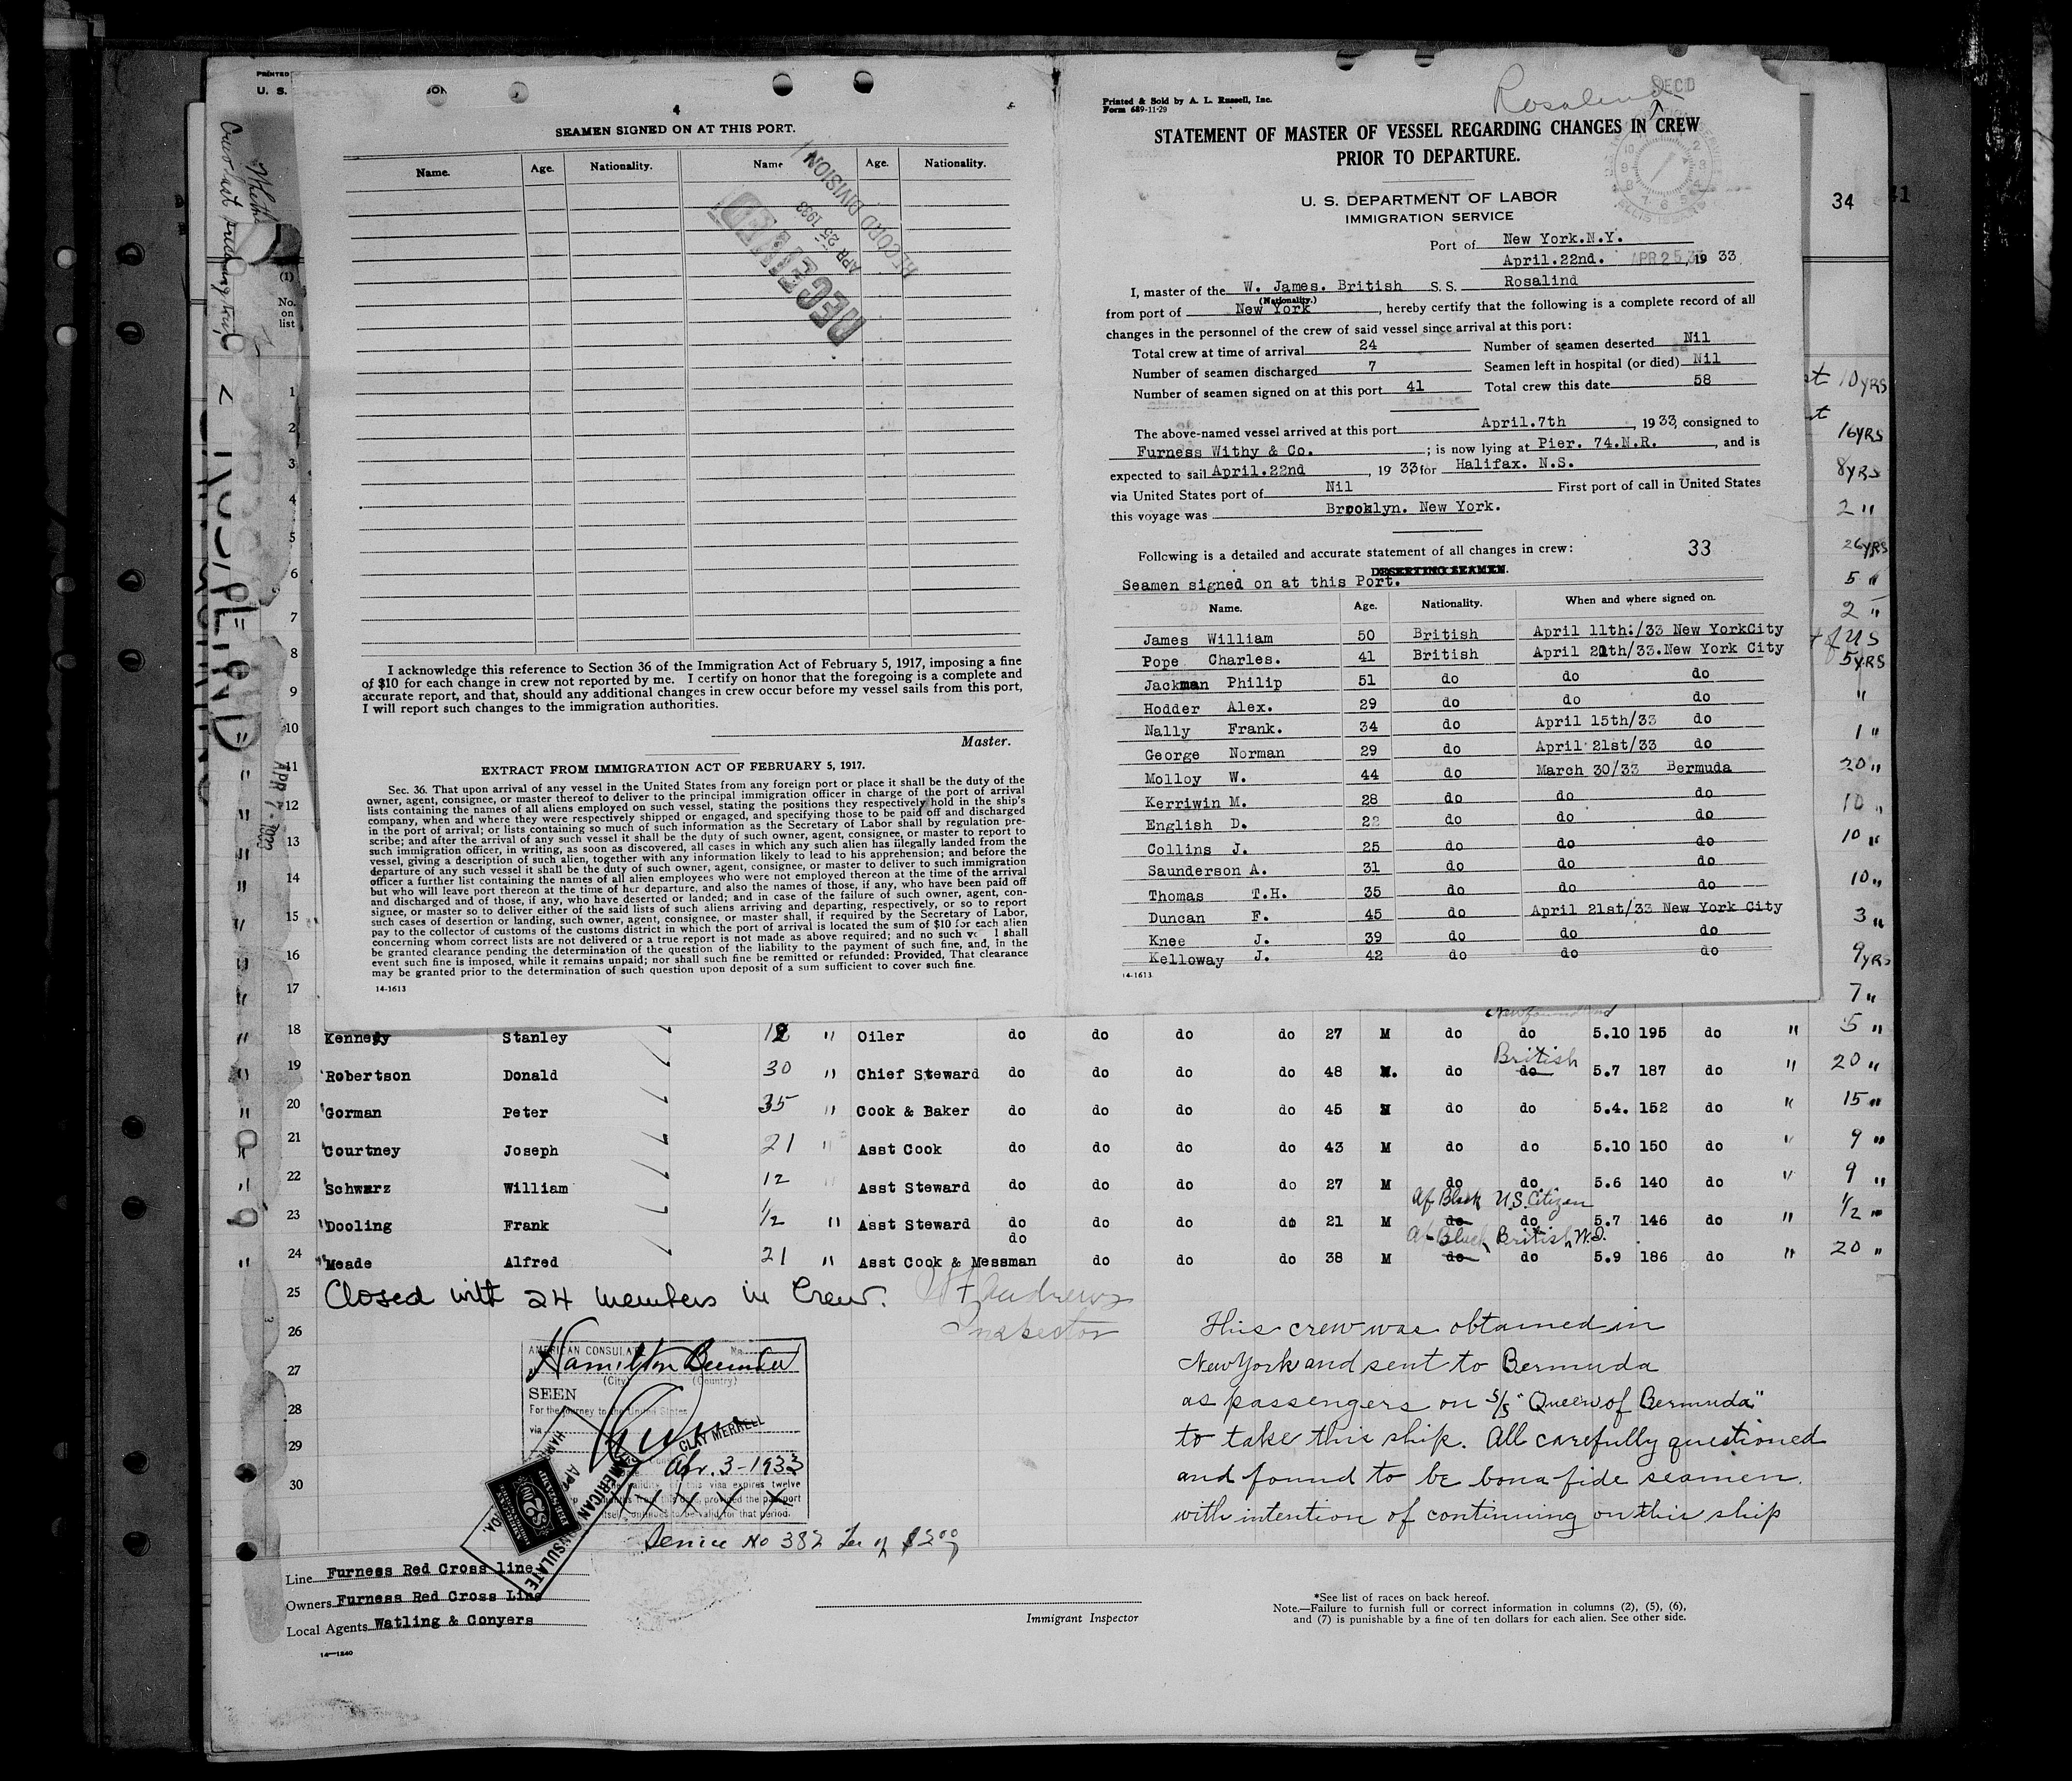 PRINTED
U. S.
4
SEAMEN SIGNED ON AT THIS PORT.
Name. Age. Nationality. Name Age. Nationality.
RECEIVED
APR 25 1933
RECORD DIVISION
I acknowledge this reference to Section 36 of the Immigration Act of February 5, 1917, imposing a fine
of $10 for each change in crew not reported by me. I certify on honor that the foregoing is a complete and
accurate report, and that, should any additional changes in crew occur before my vessel sails from this port,
I will report such changes to the immigration authorities.
Master.
EXTRACT FROM IMMIGRATION ACT OF FEBRUARY 5, 1917.
Sec. 36. That upon arrival of any vessel in the United States from any foreign port or place it shall be the duty of the
owner, agent, consignee, or master thereof to deliver to the principal immigration officer in charge of the port of arrival
lists containing the names of all aliens employed on such vessel, stating the positions they respectively hold in the ship's
company, when and where they were respectively shipped or engaged, and specifying those to be paid off and discharged
in the port of arrival; or lists containing so much of such information as the Secretary of Labor shall by regulation pre-
scribe; and after the arrival of any such vessel it shall be the duty of such owner, agent, consignee, or master to report to
such immigration officer, in writing, as soon as discovered, all cases in which any such alien has illegally landed from the
vessel, giving a description of such alien, together with any information likely to lead to his apprehension; and before the
departure of any such vessel it shall be the duty of such owner, agent, consignee, or master to deliver to such immigration
officer a further list containing the names of all alien employees who were not employed thereon at the time of the arrival
but who will leave port thereon at the time of her departure, and also the names of those, if any, who have been paid off
and discharged and of those, if any, who have deserted or landed; and in case of the failure of such owner, agent, con-
signee, or master so to deliver either of the said lists of such aliens arriving and departing, respectively, or so to report
such cases of desertion or landing, such owner, agent, consignee, or master shall, if required by the Secretary of Labor,
pay to the collector of customs of the customs district in which the port of arrival is located the sum of $10 for each alien
concerning whom correct lists are not delivered or a true report is not made as above required; and no such ve l shall
be granted clearance pending the determination of the question of the liability to the payment of such fine, and, in the
event such fine is imposed, while it remains unpaid; nor shall such fine be remitted or refunded: Provided, That clearance
may be granted prior to the determination of such question upon deposit of a sum sufficient to cover such fine.
14-1613
Rosalind
REC'D
Printed & Sold by A. L. Russell, Inc.
Form 689-11-29
STATEMENT OF MASTER OF VESSEL REGARDING CHANGES IN CREW
PRIOR TO DEPARTURE.
U. S. DEPARTMENT OF LABOR
IMMIGRATION SERVICE
Port of New York.N.Y.
April.22nd. APR 25 1933
I, master of the W. James. British S.S. Rosalind
(Nationality.)
from port of New York, hereby certify that the following is a complete record of all
changes in the personnel of the crew of said vessel since arrival at this port:
Total crew at time of arrival 24 Number of seamen deserted Nil
Number of seamen discharged 7 Seamen left in hospital (or died) Nil
Number of seamen signed on at this port 41 Total crew this date 58
The above-named vessel arrived at this port April.7th, 1933, consigned to
Furness Withy & Co.; is now lying at Pier. 74.N.R., and is
expected to sail April.22nd, 1933 for Halifax. N.S.
via United States port of Nil First port of call in United States
this voyage was Brooklyn. New York.
Following is a detailed and accurate statement of all changes in crew: 33
DESERTING SEAMEN.
Seamen signed on at this Port.
Name. Age. Nationality. When and where signed on.
James William 50 British April 11th:/33 New YorkCity
Pope Charles. 41 British April 20th/33.New York City
Jackman Philip 51 do do do
Hodder Alex. 29 do do do
Nally Frank. 34 do April 15th/33 do
George Norman 29 do April 21st/33 do
Molloy W. 44 do March 30/33 Bermuda
Kerriwin M. 28 do do do
English D. 22 do do do
Collins J. 25 do do do
Saunderson A. 31 do do do
Thomas T.H. 35 do do do
Duncan F. 45 do April 21st/33 New York City
Knee J. 39 do do do
Kelloway J. 42 do do do
14-1613
34
41
10 YRS
16 YRS
8 YRS
2 "
26 YRS
5 "
2 "
US
5 YRS
"
1 "
20 "
10 "
10 "
10 "
3 "
9 YRS
7 "
(1)
No.
on
list
1
2
3
4
5
6
7
8
9
10
11
12
13
14
15
16
17
APR 7 - 1933
Newfoundland
18 Kennedy Stanley 12 " Oiler do do do do 27 M do do 5.10 195 do " 5 "
British
19 Robertson Donald 30 " Chief Steward do do do do 48 M. do do 5.7 187 do " 20 "
20 Gorman Peter 35 " Cook & Baker do do do do 45 M do do 5.4. 152 do " 15 "
21 Courtney Joseph 21 " Asst Cook do do do do 43 M do do 5.10 150 do " 9 "
22 Schwarz William 12 " Asst Steward do do do do 27 M do do 5.6 140 do " 9 "
Af Black U.S. Citizen
23 Dooling Frank 1/2 " Asst Steward do do do do 21 M do do 5.7 146 do " 1/2 "
do
Af Black British W.I.
24 Meade Alfred 21 " Asst Cook & Messman do do do 38 M do do 5.9 186 do " 20 "
25 Closed with 24 members in Crew. Andrews
Inspector
26
27
28
29
30
AMERICAN CONSULATE No.
Hamilton Bermuda
(City) (Country)
SEEN
For the journey to the United States
via
CLAY MERRELL
Apr. 3 - 1933
validity of this visa expires twelve
months from this date, provided the passport
itself continues to be valid for that period.
X X X X X
AMERICAN CONSULATE
Service No 382 Fee of $2.00
This crew was obtained in
New York and sent to Bermuda
as passengers on S/S "Queen of Bermuda"
to take this ship. All carefully questioned
and found to be bona fide seamen.
with intention of continuing on this ship
Line Furness Red Cross line
Owners Furness Red Cross Line
Local Agents Watling & Conyers
14-1240
Immigrant Inspector
*See list of races on back hereof.
Note.—Failure to furnish full or correct information in columns (2), (5), (6),
and (7) is punishable by a fine of ten dollars for each alien. See other side.